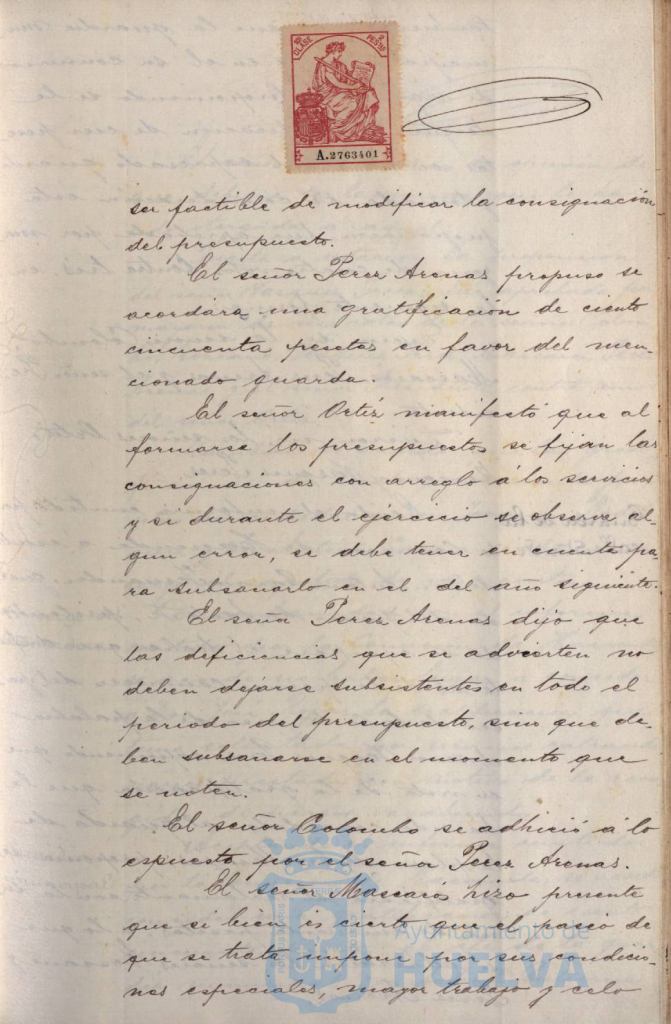 CLASE
2 PESETAS
A.2763401
ser factible de modificar la consignación
del presupuesto.
El señor Perez Arenas propuso se
acordára una gratificación de ciento
cincuenta pesetas en favor del men-
cionado guarda.
El señor Ortíz manifestó que al
formarse los presupuestos se fijan las
consignaciones con arreglo á los servicios
y si durante el ejercicio se observa al-
gun error, se debe tener en cuenta pa-
ra subsanarlo en el del año siguiente.
El señor Perez Arenas dijo que
las deficiencias que se advierten no
deben dejarse subsistentes en todo el
periodo del presupuesto, sino que de-
ben subsanarse en el momento que
se noten.
El señor Colombo se adhirió á lo
espuesto por el señor Perez Arenas.
El señor Mascarós hizo presente
que si bien es cierto que el paseo de
que se trata impone por sus condicio-
nes especiales, mayor trabajo y celo
Ayuntamiento de
HUELVA